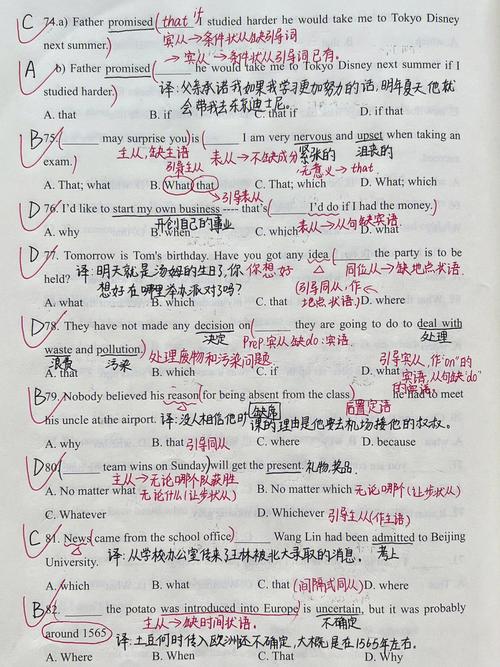 C 74.a) Father promised ( that if studied harder he would take me to Tokyo Disney
next summer.) 宾从→条件状从缺引导词
→ 宾从→条件状从引导词已有。
A b) Father promised (____ he would take me to Tokyo Disney next summer if I
studied harder.) 译:父亲承诺我如果我学习更加努力的话,明年夏天他就
会带我去东京迪士尼。
A. that B. if C. that if D. if that
B 75. (____ may surprise you) is (____ I am very nervous and upset when taking an
exam.) 主从,缺主语 表从→不缺成分 紧张的 沮丧的
引导主从 无意义→that
A. That; what B. What; that C. That; which D. What; which
引导表从
D 76. I'd like to start my own business ---- that's (____ I'd do if I had the money.)
开创自己的事业 表从→从句缺宾语
A. why B. when C. which D. what
D 77. Tomorrow is Tom's birthday. Have you got any idea (____ the party is to be
held? 译:明天就是汤姆的生日了,你 你想好 同位从→缺地点状语
想好在哪里举办派对了吗? (引导同从,作
地点状语)
A. what B. which C. that D. where
D 78. They have not made any decision on (____ they are going to do to deal with
决定 prep 宾从缺do:宾语 处理
waste and pollution.) 处理废物和污染问题
浪费 污染 引导宾从,作"on"的
宾语,从句缺"do"
A. that B. which C. if D. what
B 79. Nobody believed his reason (for being absent from the class) ____ he had to meet
缺席 后置定语
his uncle at the airport. 译:没人相信他旷课的理由是他要去机场接他的叔叔。
A. why B. that 引导同从 C. where D. because
D 80. (____ team wins on Sunday) will get the present. 礼物,奖品
主从→无论哪个队获胜
A. No matter what 无论什么(让步状从) B. No matter which 无论哪个(让步状从)
C. Whatever D. Whichever 引导主从(作主语)
C 81. News (came from the school office) ____ Wang Lin had been admitted to Beijing
University. 译:从学校办公室传来了王林被北大录取的消息。 考上
A. which B. what C. that (间隔式同从) D. where
B 82. ____ the potato was introduced into Europe is uncertain, but it was probably
主从→缺时间状语. 不确定
around 1565 译:土豆何时传入欧洲还不确定,大概是在1565年左右。
A. Where B. When C. That D. Why